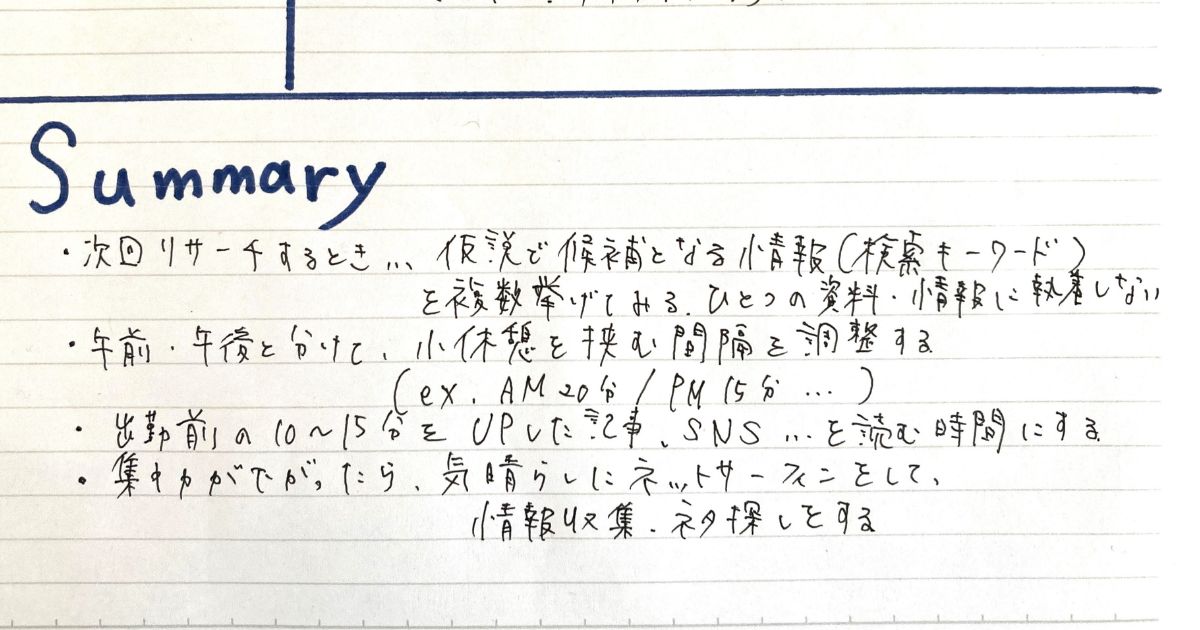 Summary
・次回リサーチするとき... 仮説で候補となる情報(検索キーワード)
を複数挙げてみる。ひとつの資料・情報に執着しない
・午前・午後と分けて、小休憩を挟む間隔を調整する
(ex. AM 20分 / PM 15分 ...)
・出勤前の10〜15分をUPした記事、SNS...を読む時間にする
・集中力が たら、気晴らしにネットサーフィンをして、
情報収集・ネタ探しをする